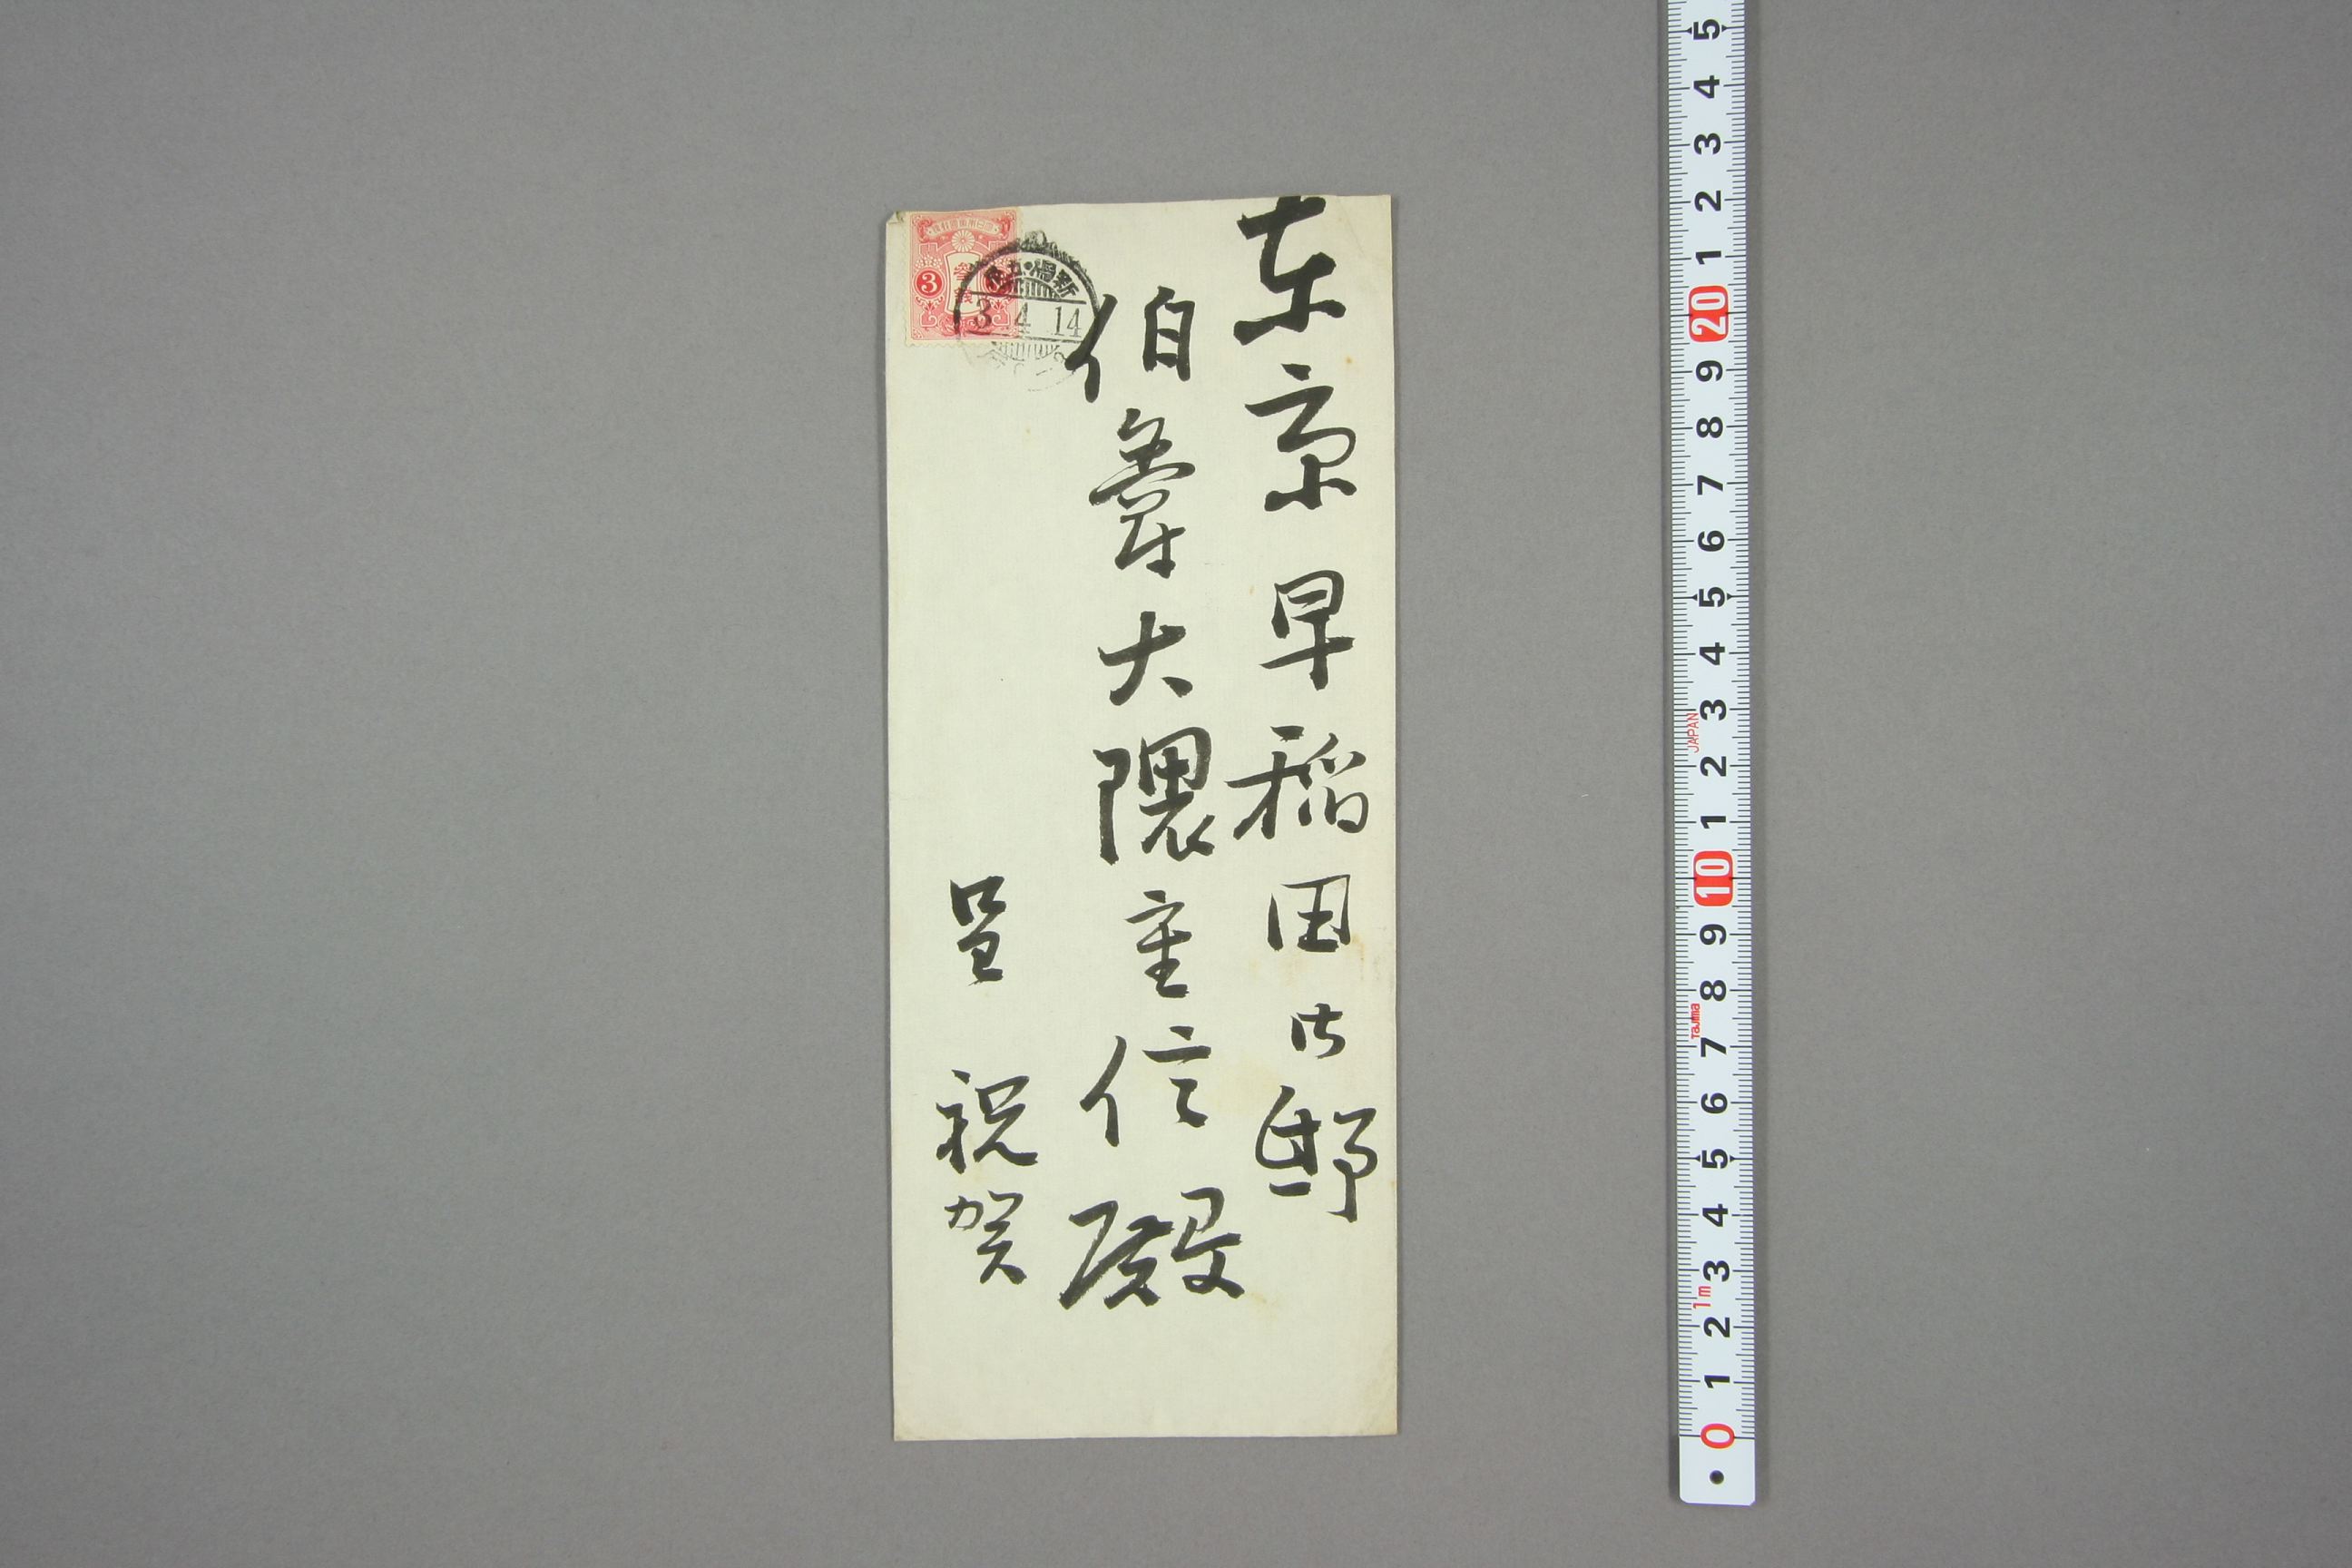 東京早稲田御邸
伯爵大隈重信殿
呈 祝賀
3
參錢
新橋
3 4 14
5
4
3
2
1
20
9
8
7
6
5
4
3
JAPAN
2
1
10
9
8
Tajima
7
6
5
4
3
1m
2
1
0